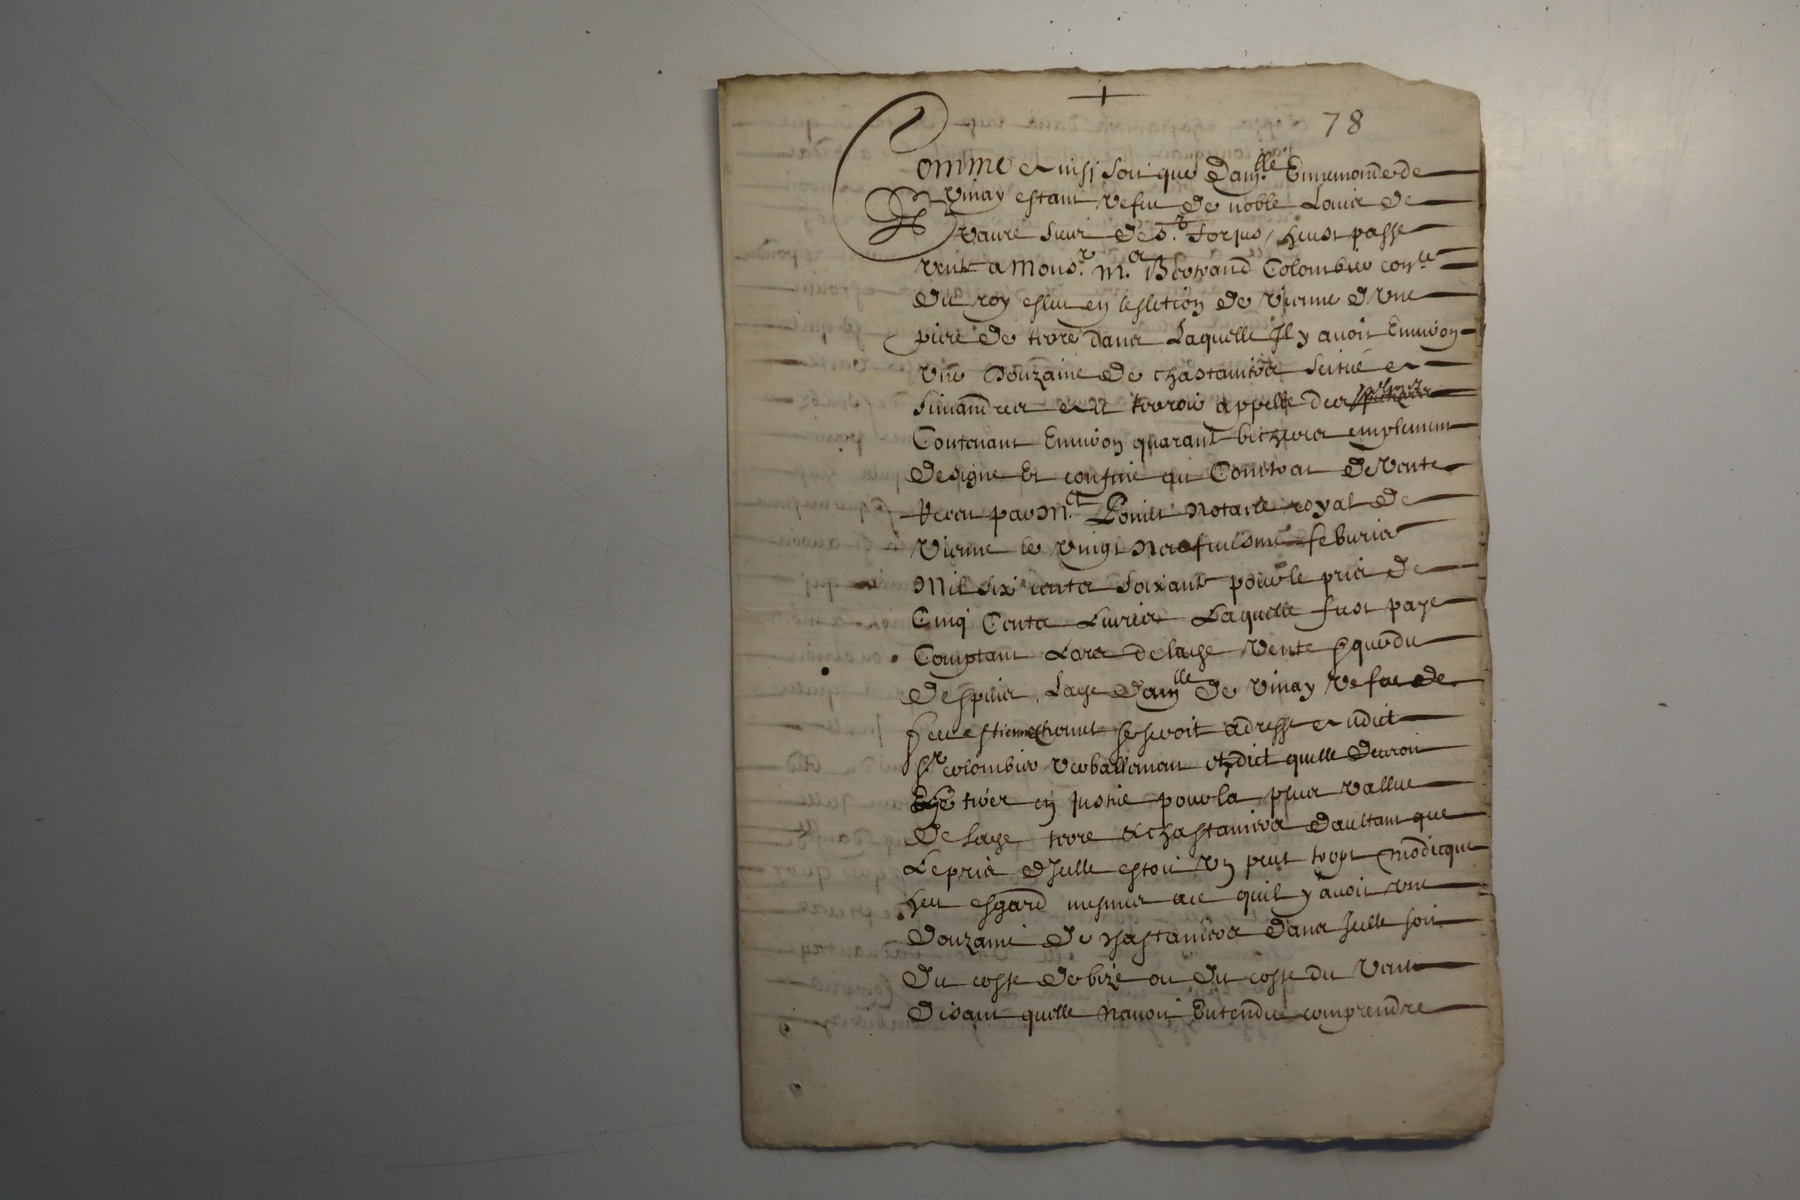 78
Comme ainsi soit que dam.lle Ennemonde de
Vinay estant vefue de noble Louis de
Vaure sieur de s.t Forjus / heust passe
vente a Mons.r m.e Bertrand Colombier con.er
du roy esleu en leslection de Vienne dune
piece de terre dans Laquelle Il y avoit Environ
Une Douzaine de chastaniers scitue a
Simandres a N terroir appelle des
Contenant Environ quarante bicherees emplement
designe Et confine au Contrat de Vente
Receu par M.e Notaire royal de
Vienne le Vingt Neufuiesme feburier
Mil six cents soixante pour le prix de
Cinq Cents Livres Laquelle fust paye
Comptant Lors de lad Vente Et que du
despuis Lad dam.lle de Vinay Vefue de
feu Estienne se seroit adresse audict
s.r colombier verballement et dict quelle devoit
tirer en Justice pour la plus vallue
de lad terre & chastaniers daultant que
Le prix dIcelle estoit Un peut trop modicque
heu esgard mesmes ace quil y avoit une
douzaine de chastaniers dans Icelle soit
du coste de bize ou du coste du Vent
disant quelle Navoit Entendu comprendre